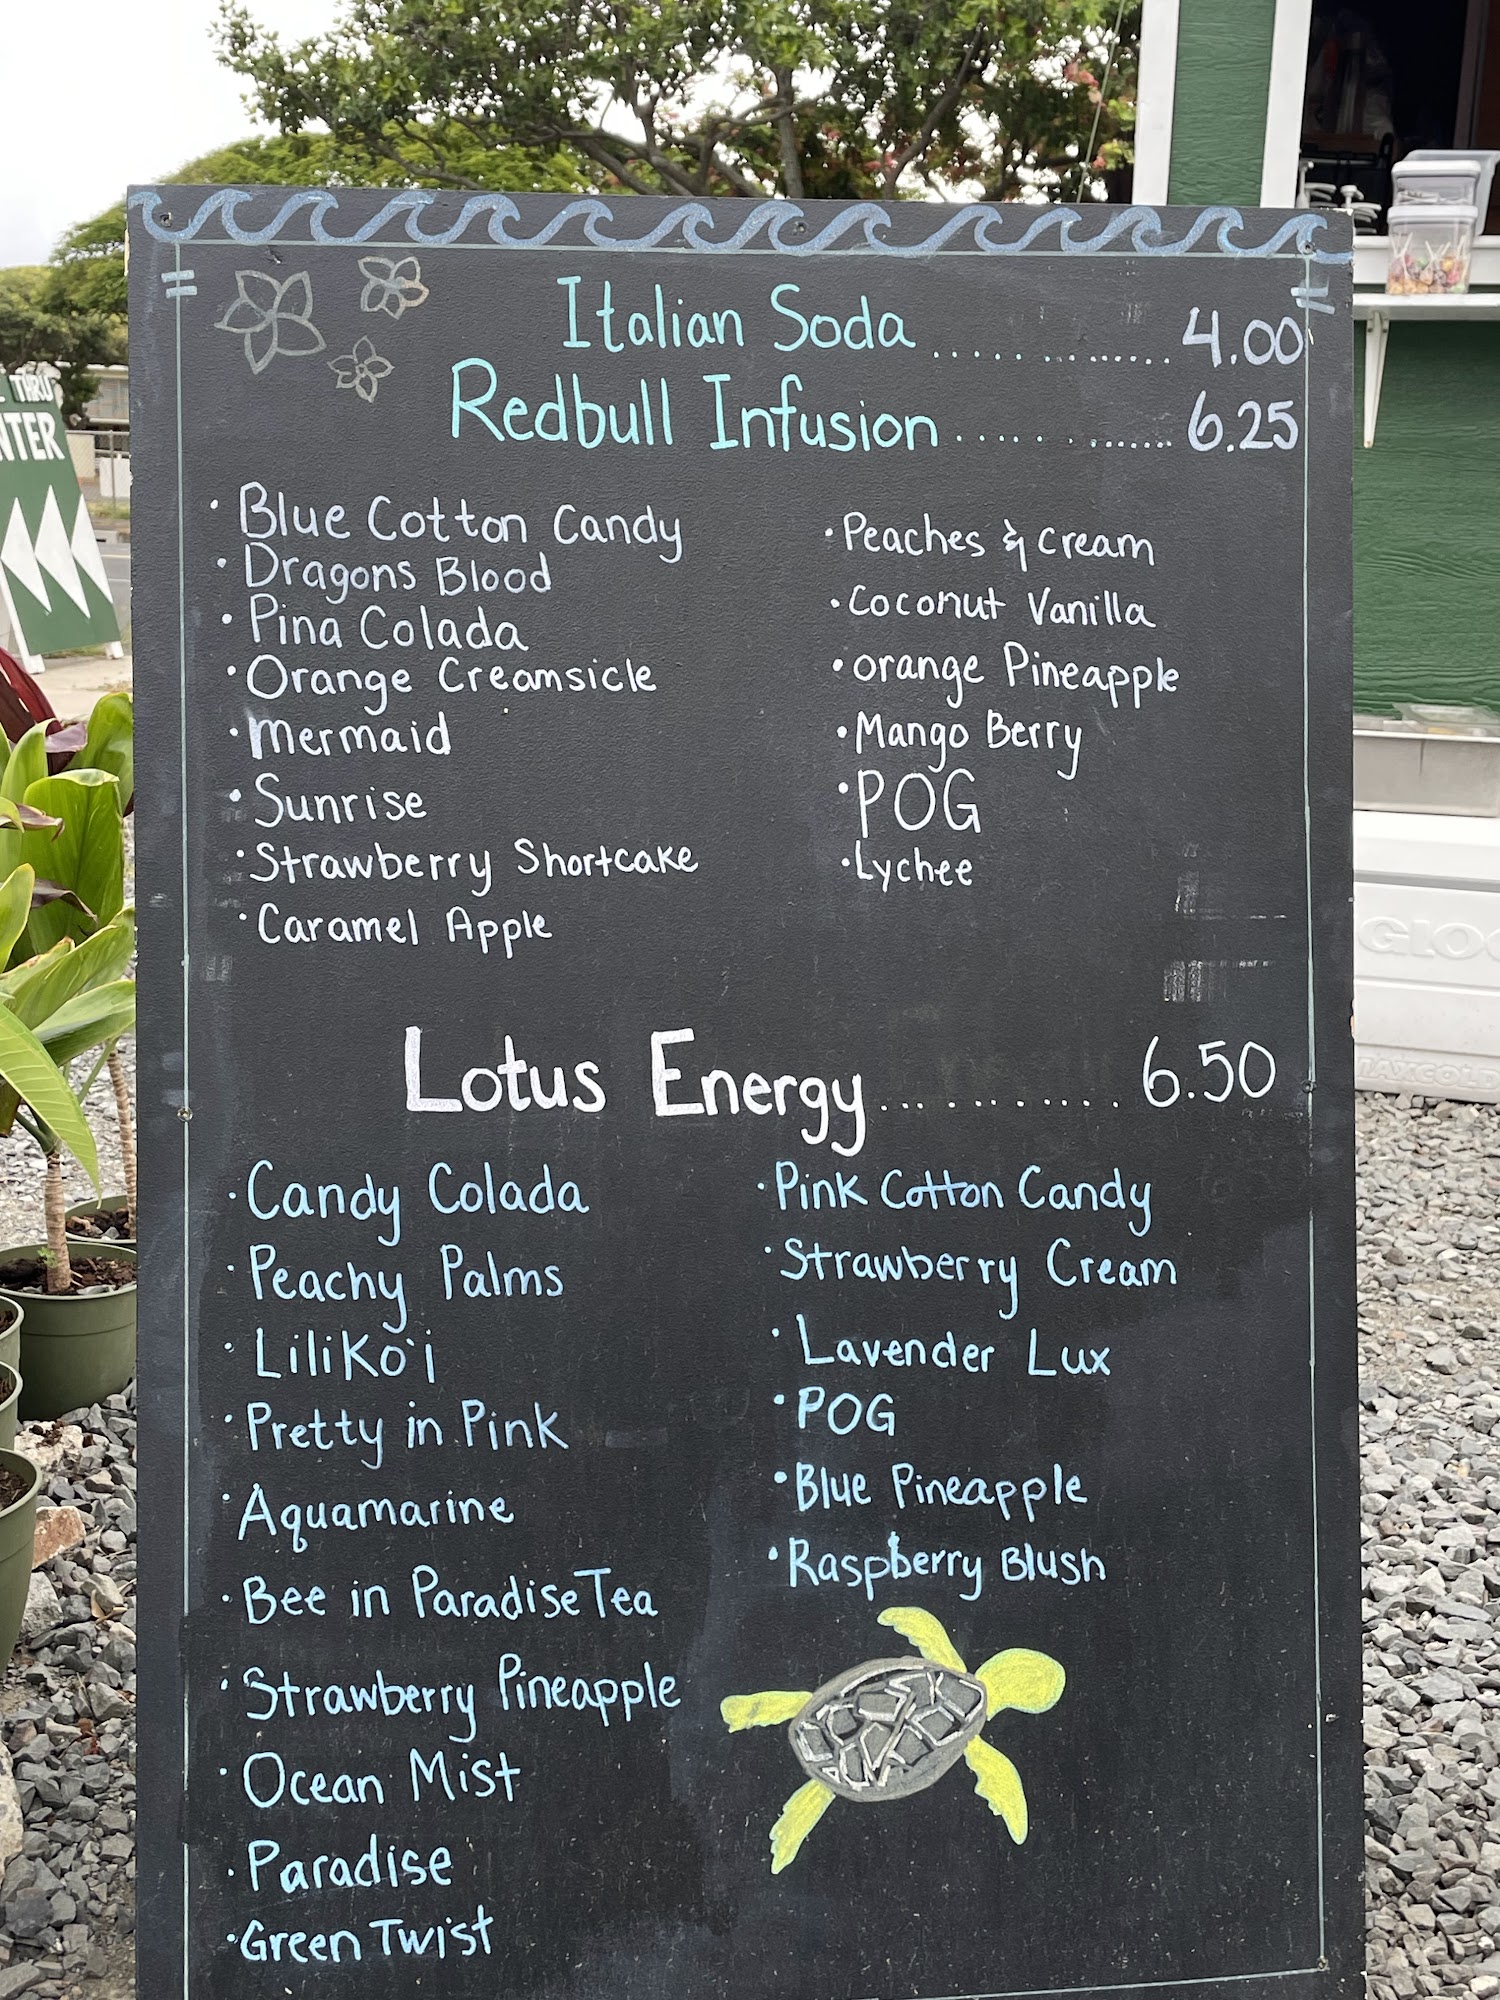 Italian Soda ............ 4.00
Redbull Infusion ............ 6.25
· Blue Cotton Candy
· Dragons Blood
· Pina Colada
· Orange Creamsicle
· Mermaid
· Sunrise
· Strawberry Shortcake
· Caramel Apple
· Peaches & Cream
· Coconut Vanilla
· Orange Pineapple
· Mango Berry
· POG
· Lychee
Lotus Energy ........... 6.50
· Candy Colada
· Peachy Palms
· Liliko`i
· Pretty in Pink
· Aquamarine
· Bee in Paradise Tea
· Strawberry Pineapple
· Ocean Mist
· Paradise
· Green Twist
· Pink Cotton Candy
· Strawberry Cream
· Lavender Lux
· POG
· Blue Pineapple
· Raspberry Blush
THRU
NTER
IGLOO
MAXCOLD